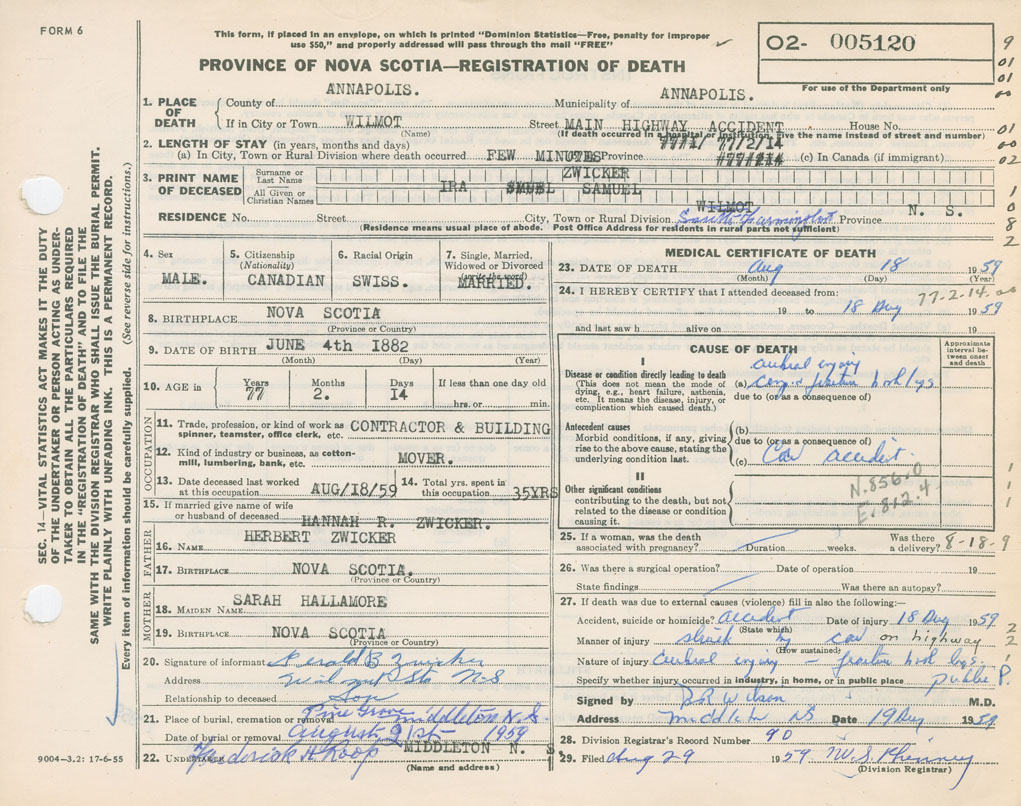 FORM 6
This form, if placed in an envelope, on which is printed "Dominion Statistics—Free, penalty for improper
use $50," and properly addressed will pass through the mail "FREE"
O2- 005120
For use of the Department only
PROVINCE OF NOVA SCOTIA—REGISTRATION OF DEATH
1. PLACE OF DEATH
County of ANNAPOLIS. Municipality of ANNAPOLIS.
If in City or Town WILMOT Street MAIN HIGHWAY ACCIDENT House No.
(Name) (If death occurred in a hospital or institution, give the name instead of street and number)
2. LENGTH OF STAY (in years, months and days) 77/2/14
(a) In City, Town or Rural Division where death occurred FEW MINUTES Province (c) In Canada (if immigrant)
3. PRINT NAME OF DECEASED
Surname or Last Name ZWICKER
All Given or Christian Names IRA SAMUEL
RESIDENCE No. Street WILMOT City, Town or Rural Division South Farmington Province N. S.
(Residence means usual place of abode. Post Office Address for residents in rural parts not sufficient)
4. Sex MALE.
5. Citizenship (Nationality) CANADIAN
6. Racial Origin SWISS.
7. Single, Married, Widowed or Divorced (write the word) MARRIED.
8. BIRTHPLACE NOVA SCOTIA
(Province or Country)
9. DATE OF BIRTH JUNE 4th 1882
(Month) (Day) (Year)
10. AGE in Years 77 Months 2. Days 14 If less than one day old
hrs. or min.
OCCUPATION
11. Trade, profession, or kind of work as spinner, teamster, office clerk, etc. CONTRACTOR & BUILDING
12. Kind of industry or business, as cotton-mill, lumbering, bank, etc. MOVER.
13. Date deceased last worked at this occupation AUG/18/59 14. Total yrs. spent in this occupation 35YRS
15. If married give name of wife or husband of deceased HANNAH R. ZWICKER.
FATHER
16. NAME HERBERT ZWICKER
17. BIRTHPLACE NOVA SCOTIA.
(Province or Country)
MOTHER
18. MAIDEN NAME SARAH HALLAMORE
19. BIRTHPLACE NOVA SCOTIA
(Province or Country)
20. Signature of informant Gerald B Zwicker
Address Wilmot Stn N-S
Relationship to deceased Son
21. Place of burial, cremation or removal Pine Grove Middleton N. S.
Date of burial or removal August 21st 1959
22. UNDERTAKER Frederick H Roop MIDDLETON N. S.
(Name and address)
MEDICAL CERTIFICATE OF DEATH
23. DATE OF DEATH Aug 18 1959
(Month) (Day) (Year)
77-2-14
24. I HEREBY CERTIFY that I attended deceased from:
19 to 18 Aug 1959
and last saw h alive on
CAUSE OF DEATH
Approximate interval between onset and death
I
Disease or condition directly leading to death
(This does not mean the mode of dying, e.g., heart failure, asthenia, etc. It means the disease, injury, or complication which caused death.)
cerebral injury
(a) Comp. fracture both legs
due to (or as a consequence of)
Antecedent causes
Morbid conditions, if any, giving rise to the above cause, stating the underlying condition last.
(b)
due to (or as a consequence of)
(c) Car accident.
II
Other significant conditions
contributing to the death, but not related to the disease or condition causing it.
N.856.0
E.812.4
25. If a woman, was the death associated with pregnancy? Duration weeks. Was there a delivery?
8-18-9
26. Was there a surgical operation? Date of operation 19
State findings Was there an autopsy?
27. If death was due to external causes (violence) fill in also the following:—
Accident, suicide or homicide? accident Date of injury 18 Aug 1959
(State which)
Manner of injury struck by car on highway
(How sustained)
Nature of injury Cerebral injury — fracture both legs.
Specify whether injury occurred in industry, in home, or in public place public P.
Signed by B R Wilson M.D.
Address Middleton NS Date 19 Aug 1959
28. Division Registrar's Record Number 90
29. Filed Aug 29 1959
(Division Registrar)
9004—3.2: 17-6-55
SEC. 14—VITAL STATISTICS ACT MAKES IT THE DUTY
OF THE UNDERTAKER OR PERSON ACTING AS UNDER-
TAKER TO OBTAIN ALL THE PARTICULARS REQUIRED
IN THE "REGISTRATION OF DEATH" AND TO FILE THE
SAME WITH THE DIVISION REGISTRAR WHO SHALL ISSUE THE BURIAL PERMIT.
WRITE PLAINLY WITH UNFADING INK. THIS IS A PERMANENT RECORD.
Every item of information should be carefully supplied. (See reverse side for instructions.)
9
01
01
00
01
00
02
1
0
8
2
1
1
1
2
2
1